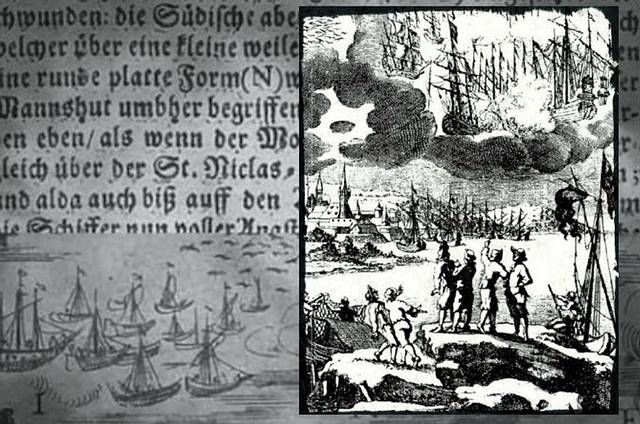 hwunden: die Südische abe
welcher über eine kleine weile
ine runde platte Form(N)w
Mannshut umbher begriffen
en eben/ als wenn der Mo
gleich über der St. Niclas⸗
und alda auch biß auff den
ie Schiffer nun voller Angst
I